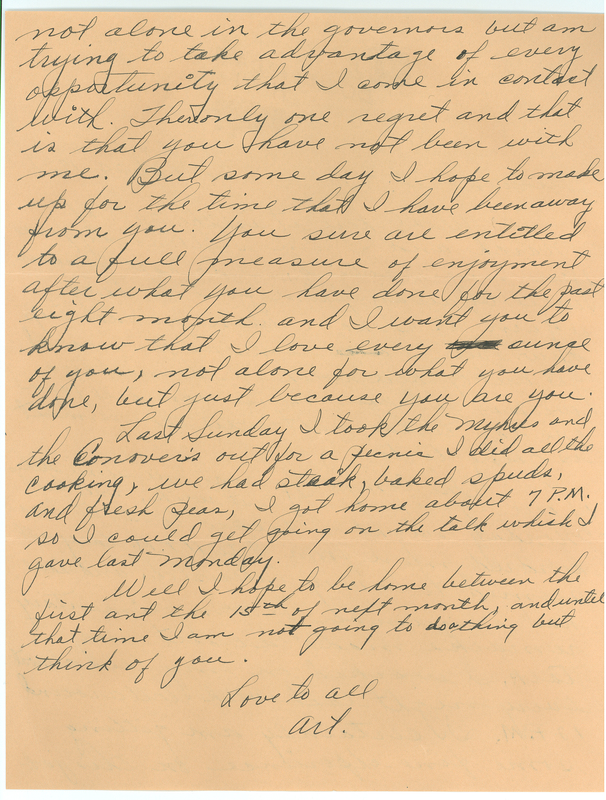 not alone in the governors but am
trying to take advantage of every
opportunity that I come in contact
with. Theronly one regret and that
is that you have not been with
me. But some day I hope to made
up for the time that I have been away
from you. You sure are entitled
to a full measure of enjoyment
after what you have done for the past
eight month. and I want you to
know that I love every ounce
of you, not alone for what you have
done, but just because you are you.
Last Sunday I took the Myres and
the Conovers out for a picnis I did all the
cooking, we had steak, baked spuds,
and fresh peas, I got home about 7 P.M.
so I could get going on the talk which I
gave last Monday.
Well I hope to be home between the
first ant the 15th of neft month, and until
that time I am not going to do a thing but
think of you.
Love to all
Art.